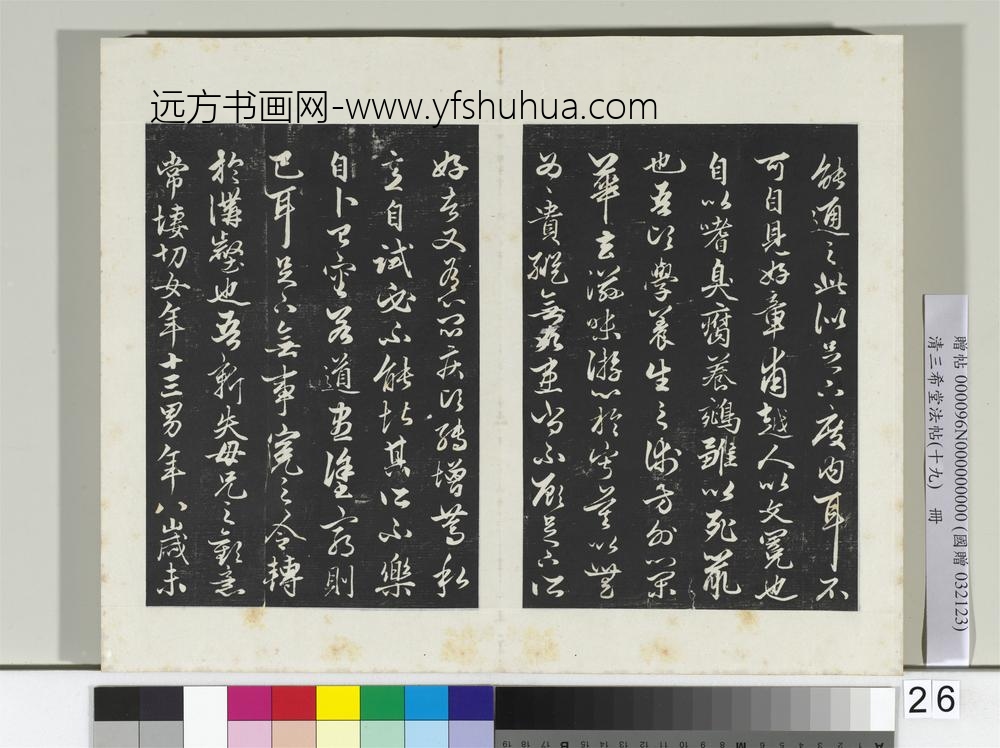 远方书画网-www.yfshuhua.com
能通之此似足下度内耳不
可自見好章甫越人以文冕也
自以嗜臭腐養鵷雛以死鼠
也吾頃學養生之術方外榮
華去滋味游心於寂莫以無
為為貴縱無九患尚不顧足下所
好者又有心悶疾頃轉增篤私
意自試必不能堪其所不樂
自卜已審若道盡塗窮則
已耳足下無事冤之令轉
於溝壑也吾新失母兄之歡意
常悽切女年十三男年八歲未
贈帖 000096N000000000 (國贈 032123)
清三希堂法帖(十九) 冊
26